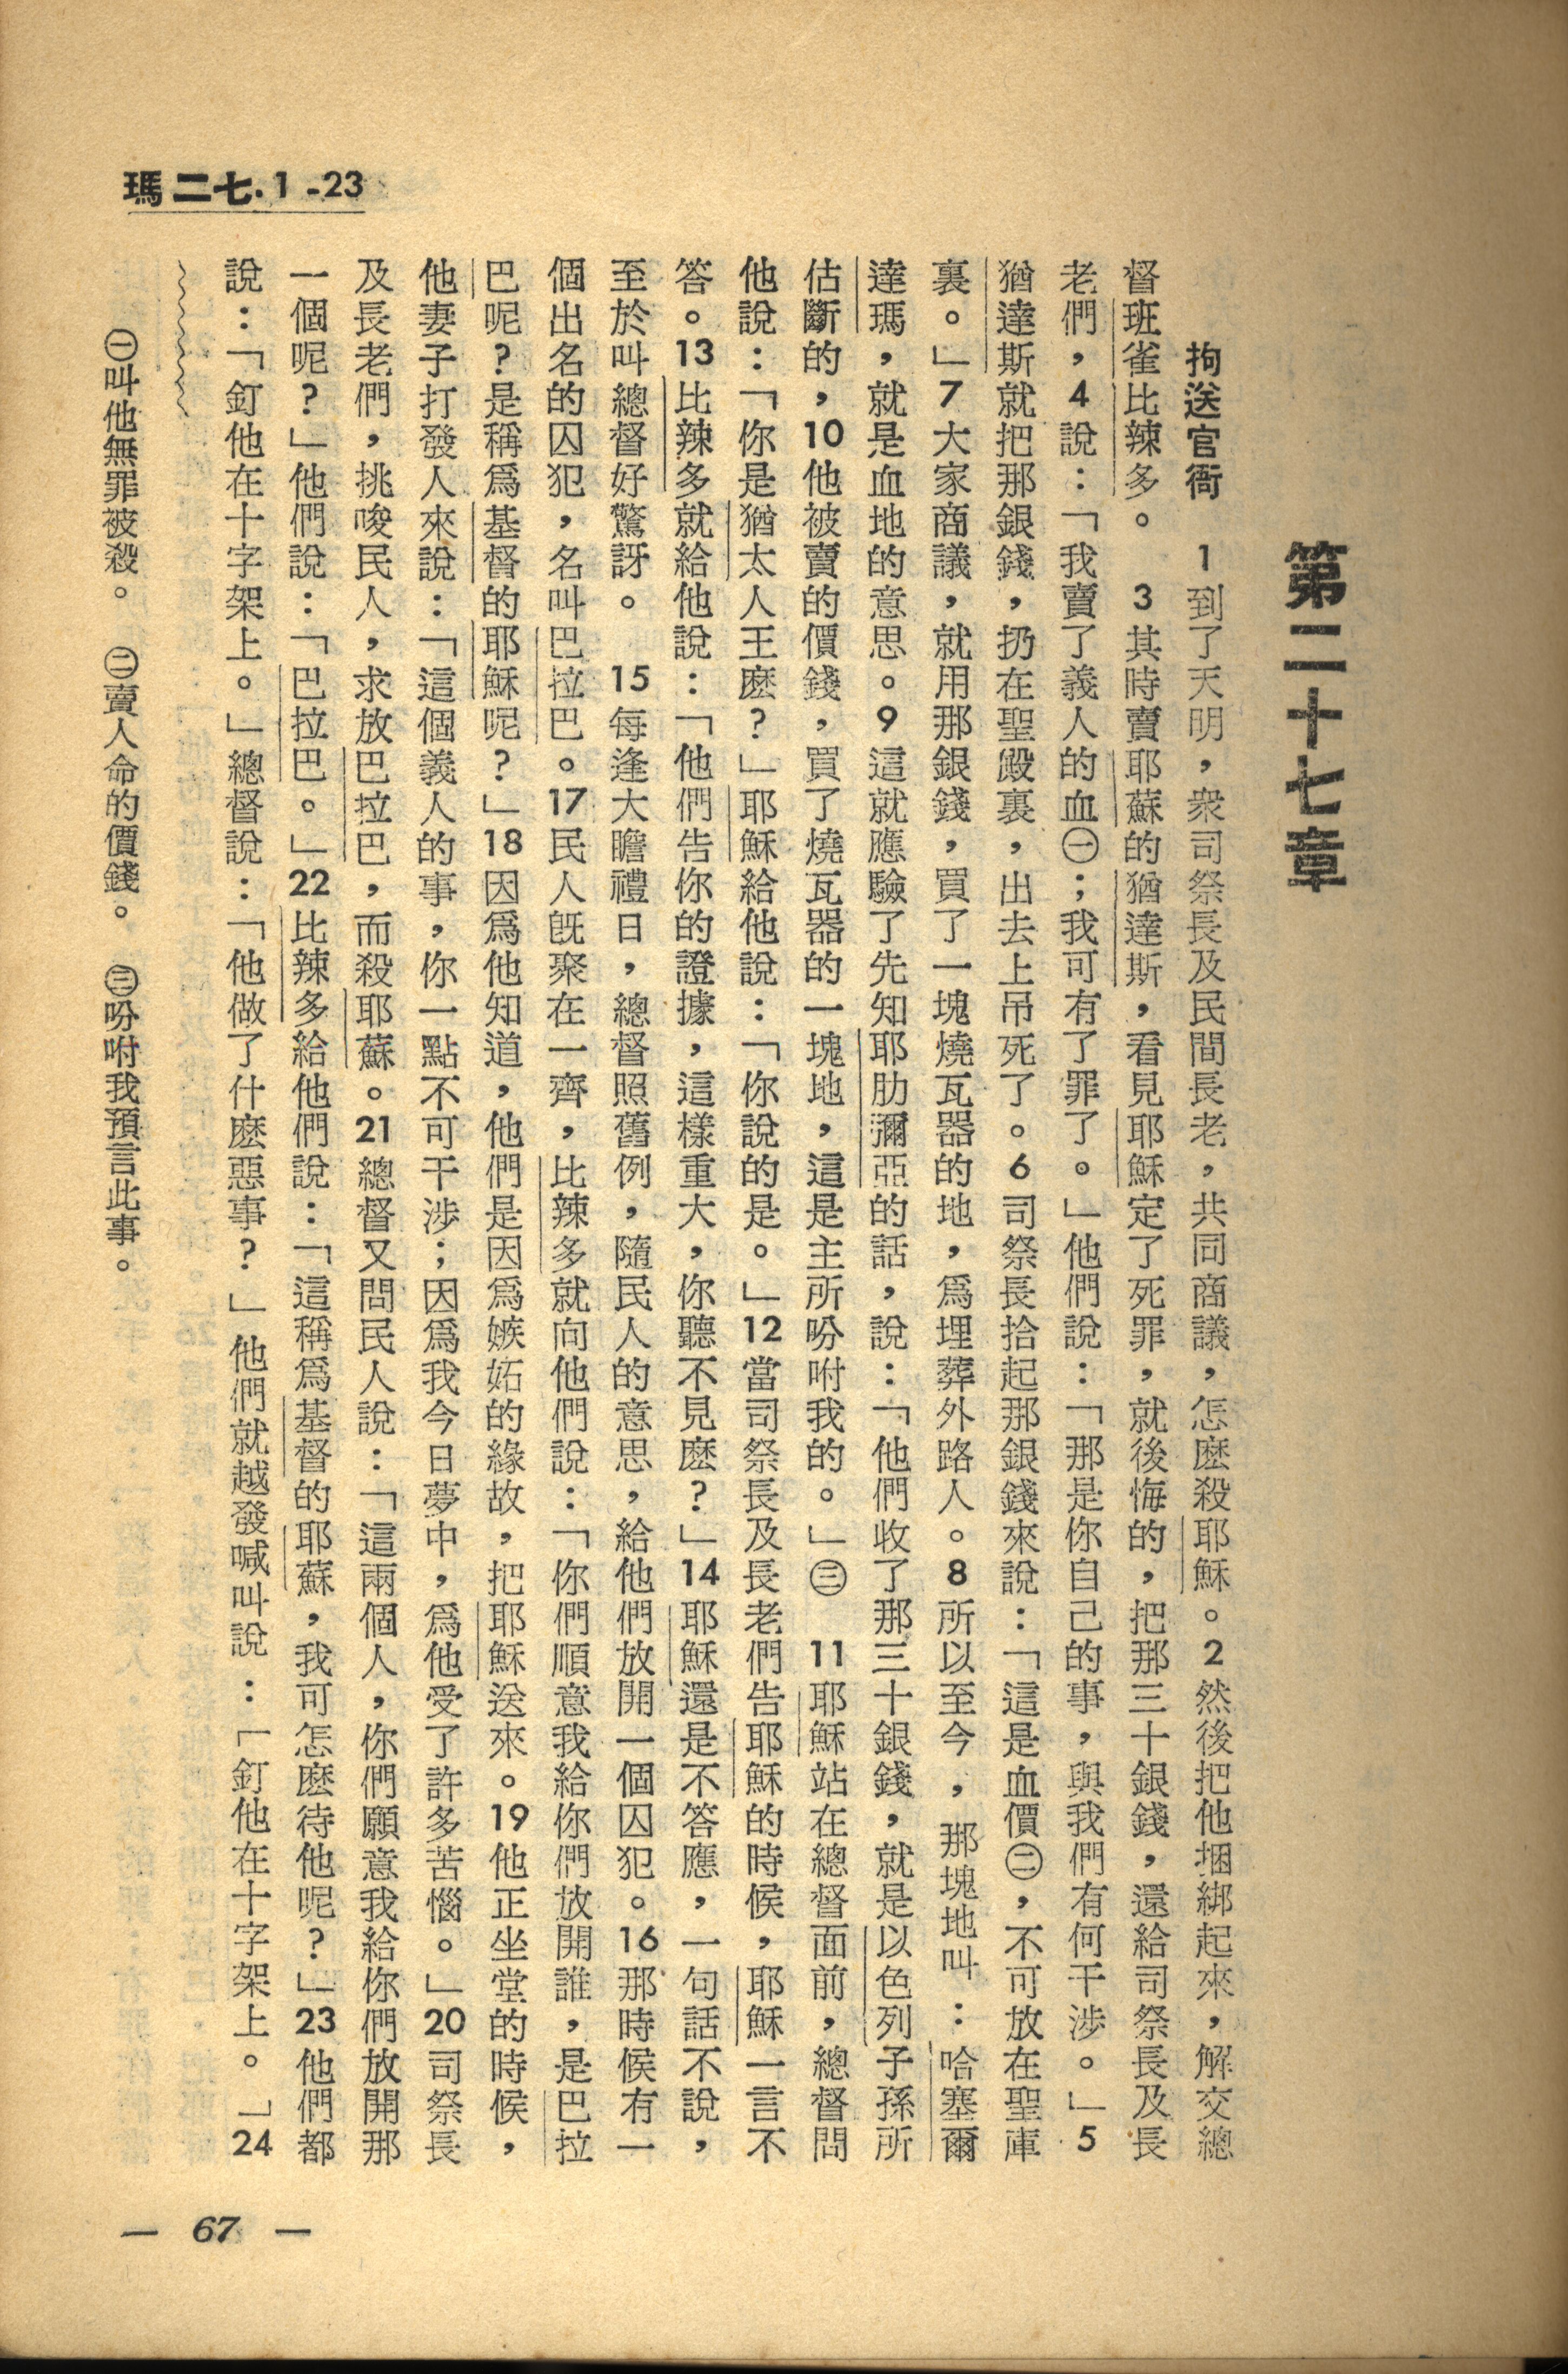 瑪二七.1-23
第二十七章
拘送官衙　1到了天明，衆司祭長及民間長老，共同商議，怎麽殺耶穌。2然後把他捆綁起來，解交總
督班雀比辣多。　3其時賣耶蘇的猶達斯，看見耶穌定了死罪，就後悔的，把那三十銀錢，還給司祭長及長
老們，4說：「我賣了義人的血㊀；我可有了罪了。」他們說：「那是你自己的事，與我們有何干涉。」5
猶達斯就把那銀錢，扔在聖殿裏，出去上吊死了。6司祭長拾起那銀錢來說：「這是血價㊁，不可放在聖庫
裏。」7大家商議，就用那銀錢，買了一塊燒瓦器的地，爲埋葬外路人。8所以至今，那塊地叫：哈塞爾
達瑪，就是血地的意思。9這就應驗了先知耶肋彌亞的話，說：「他們收了那三十銀錢，就是以色列子孫所
估斷的，10他被賣的價錢，買了燒瓦器的一塊地，這是主所吩咐我的。」㊂　11耶穌站在總督面前，總督問
他說：「你是猶太人王麽？」耶穌給他說：「你說的是。」12當司祭長及長老們告耶穌的時候，耶穌一言不
答。13比辣多就給他說：「他們告你的證據，這樣重大，你聽不見麽？」14耶穌還是不答應，一句話不說，
至於叫總督好驚訝。　15每逢大瞻禮日，總督照舊例，隨民人的意思，給他們放開一個囚犯。16那時候有一
個出名的囚犯，名叫巴拉巴。17民人旣聚在一齊，比辣多就向他們說：「你們順意我給你們放開誰，是巴拉
巴呢？是稱爲基督的耶穌呢？」18因爲他知道，他們是因爲嫉妬的緣故，把耶穌送來。19他正坐堂的時候，
他妻子打發人來說：「這個義人的事，你一點不可干涉；因爲我今日夢中，爲他受了許多苦惱。」20司祭長
及長老們，挑唆民人，求放巴拉巴，而殺耶蘇。21總督又問民人說：「這兩個人，你們願意我給你們放開那
一個呢？」他們說：「巴拉巴。」22比辣多給他們說：「這稱爲基督的耶蘇，我可怎麽待他呢？」23他們都
說：「釘他在十字架上。」總督說：「他做了什麽惡事？」他們就越發喊叫說：「釘他在十字架上。」24
㊀叫他無罪被殺。　㊁賣人命的價錢。　㊂吩咐我預言此事。
— 67 —